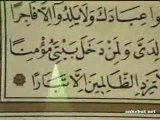 وا۟ عِبَادَكَ وَلَا يَلِدُوا إِلَّا فَاجِرًا
لِدَيَّ وَلِمَنْ دَخَلَ بَيْتِيَ مُؤْمِنًا
تَزِدِ الظَّالِمِينَ إِلَّا تَبَارًا